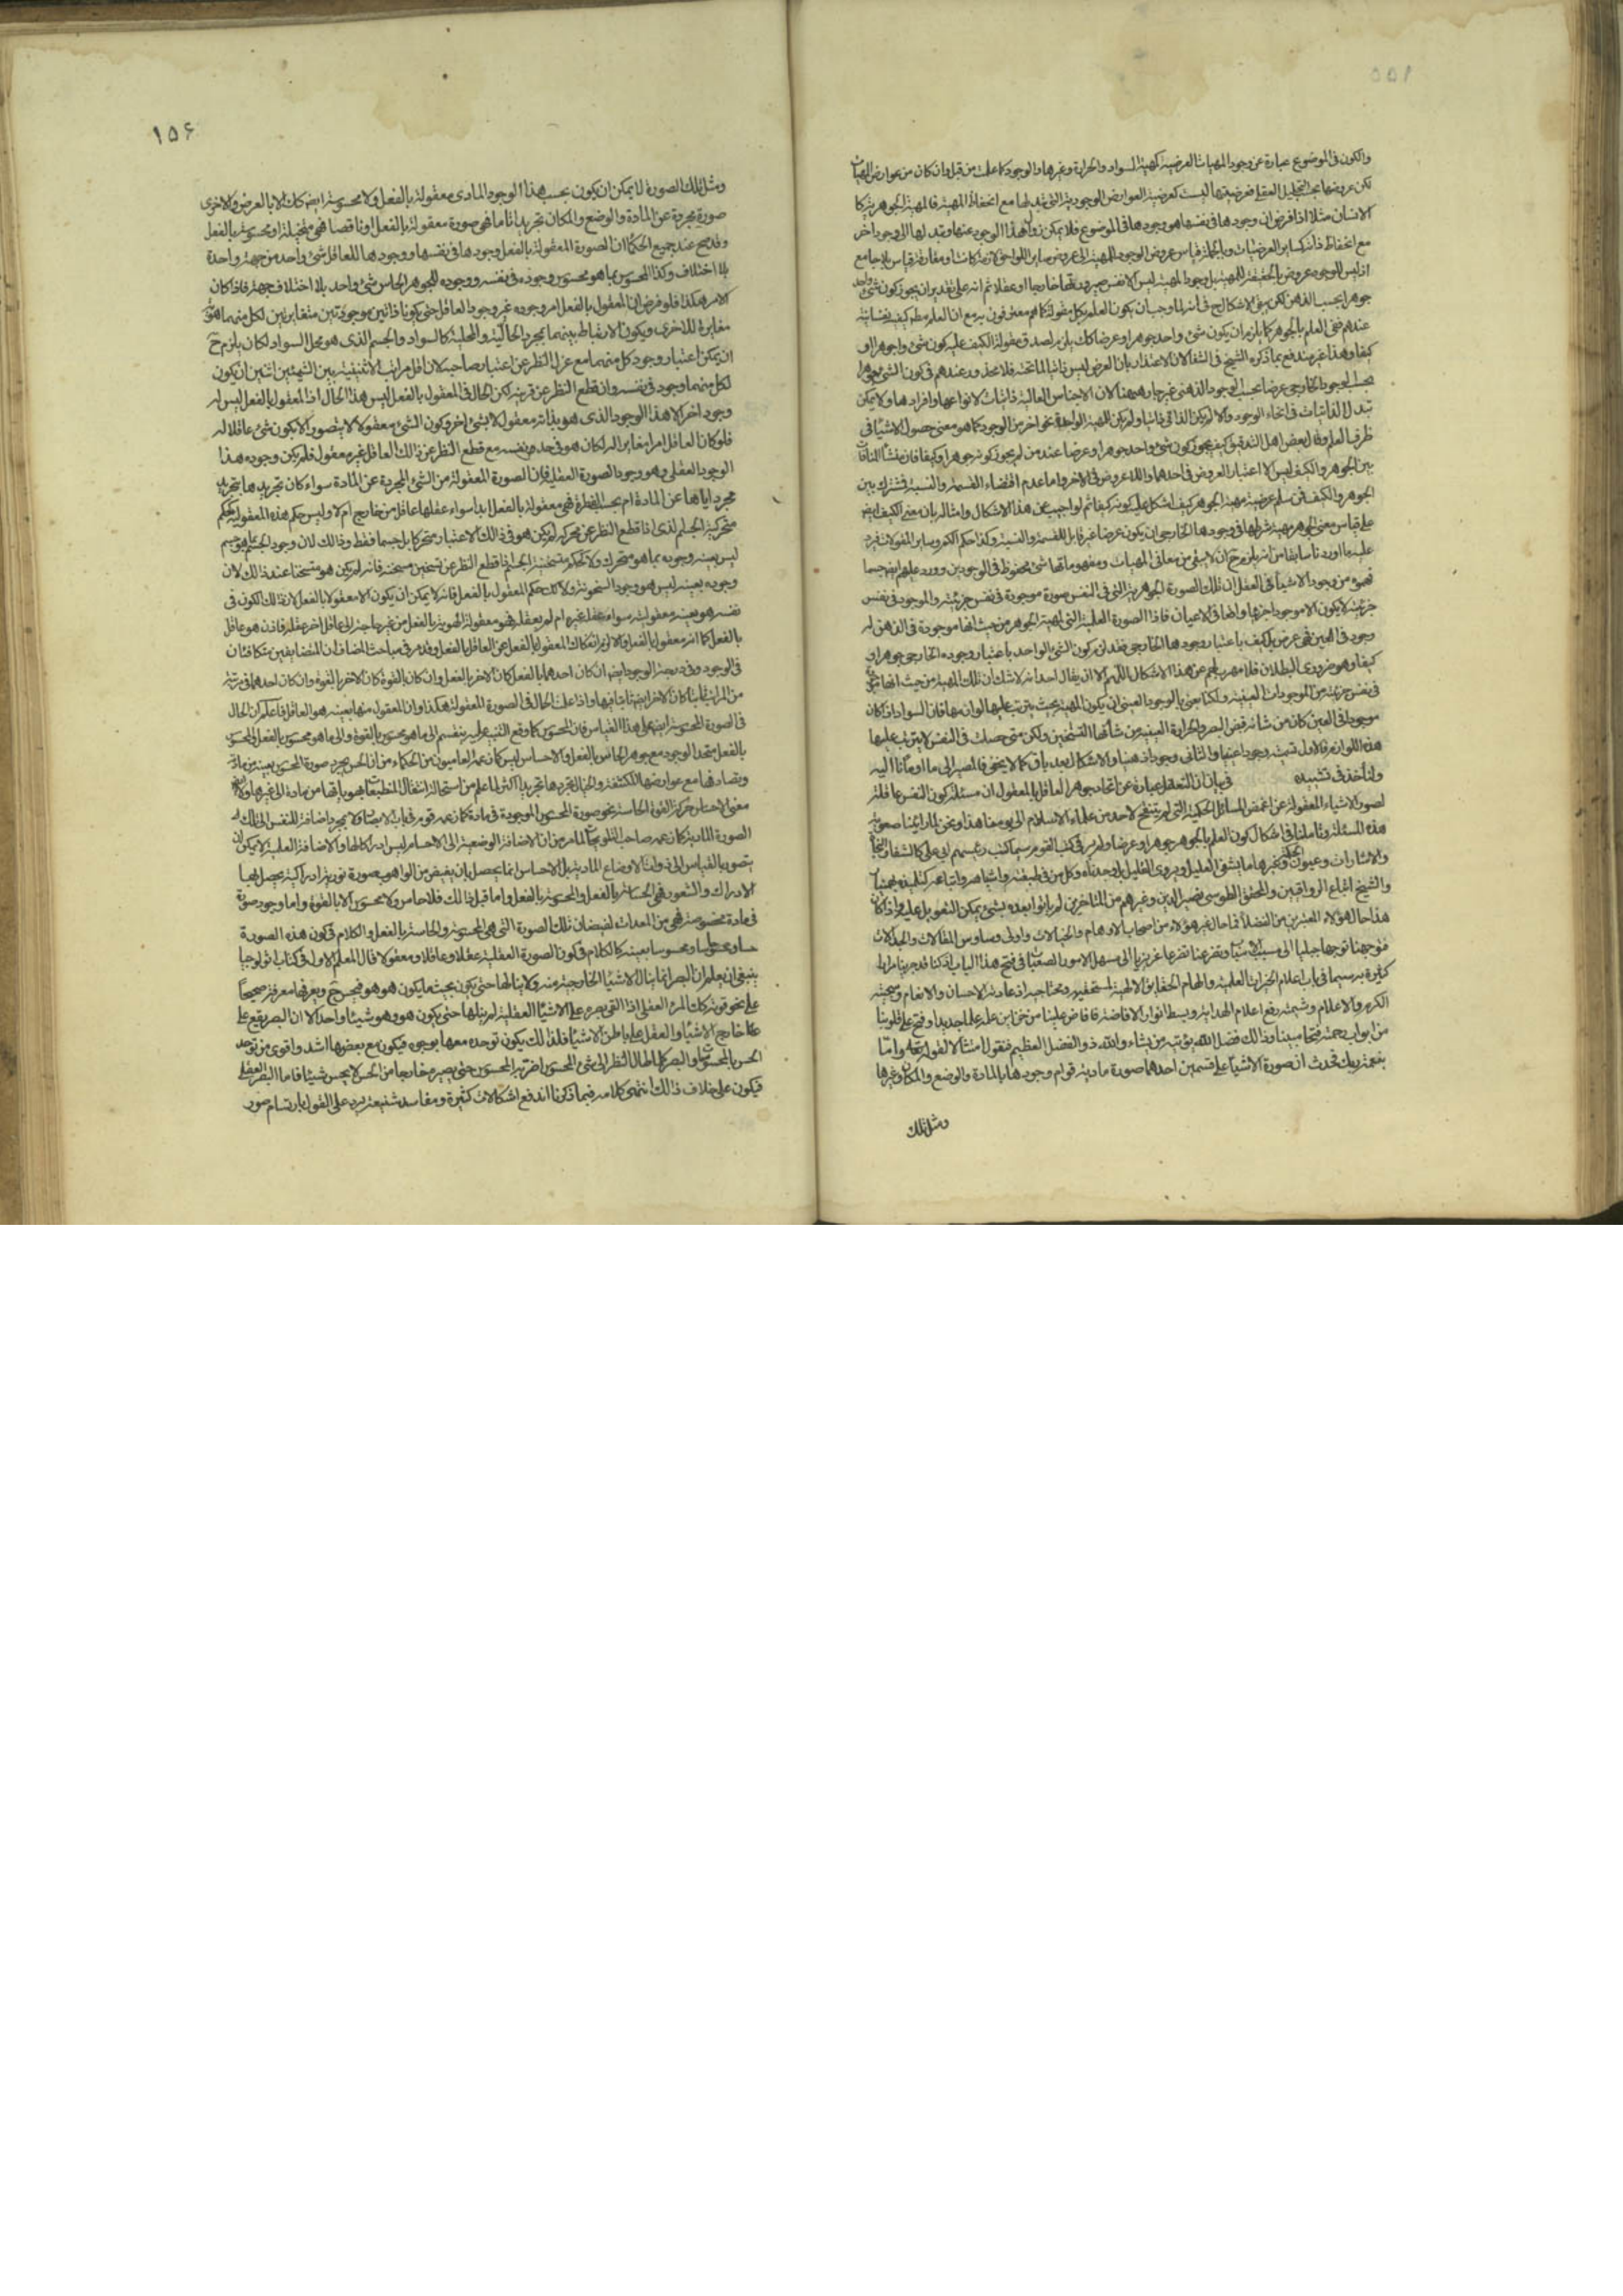 والكون فى الموضوع عبارة عن وجود المهيات العرضية كمهية السواد والحرارة وغيرها والوجود كما علمت من قبل وان كان من عوارض المهيات
لكن عروضها بحسب التحليل العقلى فعرضيتها ليست كعرضية العوارض الوجودية التى تبدلها مع انحفاظ المهية فالمهية الجوهرية كا
الانسان مثلا اذا فرض ان وجودها فى نفسها هو وجودها فى الموضوع فلا يمكن زوال هذا الوجود عنها وتبدلها الى وجود اخر
مع انحفاظ ذاته كساير العرضيات وبالجملة قياس عروض الوجود للمهية الى عروض ساير اللواحق لازمة كانت او مفارقة قياس بلا جامع
اذ ليس للوجود عروض بالحقيقة للمهية بل وجود المهية ليس الا نفس صيرورتها خارجا او عقلا ثم انه على تقدير ان يجوز كون شئ واحد
جوهرا بحسب الذهن لكن بقى الاشكال ح فى انه لما وجب ان يكون العلم بكل مقولة كما هم معترفون به مع ان العلم مطلقا كيف نفسانية
عندهم ففى العلم بالجوهر كما يلزم ان يكون شئ واحد جوهرا وعرضا كك يلزم لصدق مقولة الكيف عليه كون شئ واحد جوهرا و
كيفا وهذا غير مندفع بما ذكره الشيخ فى الشفا لان الاعتذار بان العرض ليس ذاتيا لما تحته فلا محذور عندهم فى كون الشئ جوهرا
بحسب الوجود الخارجى عرضا بحسب الوجود الذهنى غير جار ههنا لان الاجناس العالية ذاتيات لانواعها وافرادها ولا يمكن
تبدل الذاتيات فى انحاء الوجود والا لم يكن الذاتى ذاتيا ولم يكن للمهية الواحدة نحو اخر من الوجود كما هو معنى حصول الاشيا فى
ظرف العلم وقال بعض اهل التدقيق كيف يجوز كون شئ واحد جوهرا وعرضا عند من لم يجوز كونه جوهرا وكيفا فان منشأ المنافات
بين الجوهر والكيف ليس الا اعتبار العروض فى احدهما واللا عروض فى الاخر واما عدم اقتضاء القسمة والنسبة فمشترك بين
الجوهر والكيف فمن سلم عرضية مهية الجوهر كيف اشكل عليه كونه كيفا ثم لو اجيب عن هذا الاشكال وامثاله بان معنى الكيف ايض
على قياس معنى الجوهر مهية شرطها فى وجودها الخارجى ان يكون عرضا غير قابل للقسمة والنسبة وكذا حكم الكم وساير المقولات فيرد
عليه ما اوردنا سابقا من انه يلزم ح ان لا يبقى من معانى المهيات ومفهوماتها شئ محفوظ فى الوجودين وورد عليهم ايض حسبما
فهموه من وجود الاشيا فى العقل ان تلك الصورة الجوهرية التى فى النفس صورة موجودة فى نفس جزئية والموجود فى نفس
جزئية لا يكون الا موجودا جزئيا واقعا فى الاعيان فاذا الصورة العلمية التى لمهية الجوهر من حيث انها موجودة فى الذهن له
وجود فى العين فهى عرض بل كيف باعتبار وجودها الخارجى فقد لزم كون الشئ الواحد باعتبار وجوده الخارجى جوهرا و
كيفا وهو ضرورى البطلان فلا مهرب لهم عن هذا الاشكال اللهم الا ان يقال احد انه لا شك ان تلك المهية من حيث انها
فى نفس جزئية من الموجودات العينية ولكنا يعنى بالوجود العينى ان يكون المهية بحيث يترتب عليها لوازمها فان السواد اذا كان
موجودا فى العين كان من شانه قبض البصر والحرارة العينية من شأنها التسخين ولكن متى حصلت فى النفس لا يترتب عليها
هذه اللوازم فالاول نسميه وجودا عينيا والثانى وجودا ذهنيا والاشكال بعد باق كما لا يخفى فالمصير الى ما اومأنا اليه
ولنأخذ فى تشييده فى بيان ان التعقل عبارة عن اتحاد جوهر العاقل بالمعقول ان مسئلة كون النفس عاقلة
لصور الاشياء المعقولة من اغمض المسائل الحكمية التى لم ينقح لاحد من علماء الاسلام الى يومنا هذا ونحن لما راينا صعوبة
هذه المسئلة وتاملنا فى اشكال كون العلم بالجوهر جوهرا وعرضا ولم نر فى كتب القوم سيما كتب رئيسهم ابى على كالشفا والنجاة
والاشارات وعيون الحكمة وغيرها ما يشفى العليل ويروى الغليل بل وجدناه وكل من فى طبقته واشباهه واتباعه كتلميذه بهمنيار
والشيخ اتباع الرواقيين والمحقق الطوسى نصير الدين وغيرهم من المتاخرين لم ياتوا بعده بشئ يمكن التعويل عليه واذا كان
هذا حال هؤلاء المعتبرين من الفضلا فما حال غير هؤلاء من اصحاب الاوهام والخيالات واولى وساوس المقالات والجدالات
فتوجهنا توجها جبليا الى مسبب الاسباب وتضرعنا تضرعا غريزيا الى مسهل الامور الصعاب فى فتح هذا الباب اذ كنا قد جربنا مرارا
كثيرة سيما فى باب اعلام الخيرات العلمية والهام الحقايق الالهية لمستحقيه ومحتاجيه ان عادته الاحسان والانعام وسجيته
الكرم والاعلام وشيمته رفع اعلام الهداية وبسط انوار الافاضة فافاض علينا من خزاين علمه علما جديدا وفتح على قلوبنا
من ابواب رحمته فتحا مبينا وذلك فضل الله يؤتيه من يشاء والله ذو الفضل العظيم فنقول امتثالا لقوله تعالى واما
بنعمة ربك فحدث ان صورة الاشيا على قسمين احدهما صورة مادية قوام وجودها بالمادة والوضع والمكان وغيرها
ومثل تلك
١٥٦
ومثل تلك الصورة لا يمكن ان يكون بحسب هذا الوجود المادى معقولة بالفعل ولا محسوسة ايض كك الا بالعرض والاخرى
صورة مجردة عن المادة والوضع والمكان تجريدا تاما فهى صورة معقولة بالفعل او ناقصا فهى متخيلة او محسوسة بالفعل
وقد صح عند جميع الحكما ان الصورة المعقولة بالفعل وجودها فى نفسها ووجودها للعاقل شئ واحد من جهة واحدة
بلا اختلاف وكذا المحسوس بما هو محسوس وجوده فى نفسه ووجوده للجوهر الحاس شئ واحد بلا اختلاف جهة فاذا كان
الامر هكذا فلو فرض ان المعقول بالفعل امر وجوده غير وجود العاقل حتى يكونا ذاتين موجودتين متغايرتين لكل منهما هوية
مغايرة للاخرى ويكون الارتباط بينهما بمجرد الحالية والمحلية كالسواد والجسم الذى هو محل السواد لكان يلزم ح
ان يمكن اعتبار وجود كل منهما مع عزل النظر عن اعتبار صاحبه لان اقل مراتب الاثنينية بين الشيئين اثنين ان يكون
لكل منهما وجود فى نفسه وان قطع النظر عن قرينه لكن الحال فى المعقول بالفعل ليس هذا الحال اذ المعقول بالفعل ليس له
وجود اخر الا هذا الوجود الذى هو بذاته معقول لا بشئ اخر وكون الشئ معقولا لا يتصور الا بكون شئ عاقلا له
فلو كان العاقل امرا مغايرا له لكان هو فى حد نفسه مع قطع النظر عن ذالك العاقل غير معقول فلم يكن وجوده هذا
الوجود العقلى وهو وجود الصورة العقلية فان الصورة المعقولة من الشئ المجردة عن المادة سواء كان تجريدها بتجريد
مجرد اياها عن المادة ام بحسب الفطرة فهى معقولة بالفعل ابدا سواء عقلها عاقل من خارج ام لا وليس حكم هذه المعقولية كحكم
متحركية الجسم الذى اذا قطع النظر عن محركه لم يكن هو فى ذالك الاعتبار متحركا بل جسما فقط وذالك لان وجود الجسم بما هو جسم
ليس بعينه وجوده بما هو متحرك ولا كحكم متسخنية الجسم اذا قطع النظر عن تسخين مسخنه فانه لم يكن هو متسخنا عند ذالك لان
وجوده بعينه ليس هو وجود السخونة ولا كك حكم المعقول بالفعل فانه لا يمكن ان يكون الا معقولا بالفعل لان ذالك الكون فى
نفسه هو بعينه معقوليته سواء عقله غيره ام لم يعقله فهو معقول الهوية بالفعل من غير حاجة الى عاقل اخر عقله فاذن هو عاقل
بالفعل كما انه معقول بالفعل والا لزم انفكاك المعقول بالفعل عن العاقل بالفعل وقد مر فى مباحث المضاف ان المتضايفين متكافئان
فى الوجود وفى درجة الوجود ايض ان كان احدهما بالفعل كان الاخر بالفعل وان كان بالقوة كان الاخر بالقوة وان كان احدهما فى مرتبة
من المراتب ثابتا كان الاخر ايض ثابتا فيها واذا علمت الحال فى الصورة المعقولة هكذا وان المعقول منها بعينه هو العاقل فاعلم ان الحال
فى الصورة المحسوسة ايض على هذا القياس فان المحسوس كما وقع التنبيه عليه ينقسم الى ما هو محسوس بالقوة والى ما هو محسوس بالفعل والمحسوس
بالفعل متحد الوجود مع جوهر الحاس بالفعل والاحساس ليس كما زعمه العاميون من الحكماء من ان الحس يجرد صورة المحسوس بعينه من مادته
ويصادفها مع عوارضها المكتنفة والخيال يجردها تجريدا اكثر لما علم من استحالة انتقال المنطبعات بهوياتها من مادة الى غيرها ولا ايض
معنى الاحساس حركة القوة الحاسة نحو صورة المحسوس الموجودة فى مادته كما زعمه قوم فى باب الابصار ولا بمجرد اضافة للنفس الى تلك
الصورة المادية كما زعمه صاحب التلويحات لما مر من ان الاضافة الوضعية الى الاجسام ليس ادراكا لها والاضافة العلمية لا يمكن ان
يتصور بالقياس الى ذوات الاوضاع المادية بل الاحساس انما يحصل بان يفيض من الواهب صورة نورية ادراكية يحصل بها
الادراك والشعور فهى الحاسة بالفعل والمحسوسة بالفعل واما قبل ذالك فلا حاس ولا محسوس الا بالقوة واما وجود صورة
فى مادة مخصوصة فهى من المعدات لفيضان تلك الصورة التى هى المحسوسة والحاسة بالفعل والكلام فى كون هذه الصورة
حسا وحاسا ومحسوسا بعينه كالكلام فى كون الصورة العقلية عقلا وعاقلا ومعقولا قال المعلم الاول فى كتاب اثولوجيا
ينبغى ان يعلم ان البصر انما ينال الاشيا الخارجة منه ولا ينالها حتى يكون بحيث ما يكون هو هو فيحس ح ويعرفها معرفة صحيحة
على نحو قوته كك المرء العقلى اذا القى بصره على الاشيا العقلية لم ينلها حتى يكون هو وهو شيئا واحدا الا ان البصر يقع على
خارج الاشيا والعقل على باطن الاشيا فلذالك يكون توحده معها بوجوه فيكون مع بعضها اشد واقوى من توحد
الحس بالمحسوسات والبصر كلما اطال النظر الى شئ المحسوس اضر به المحسوس حتى يصير خارجا من الحس لا يحس شيئا فاما البصر العقلى
فيكون على خلاف ذالك انتهى كلامه فبما ذكرنا اندفع اشكالات كثيرة ومفاسد شنيعة يرد على القول بارتسام صور